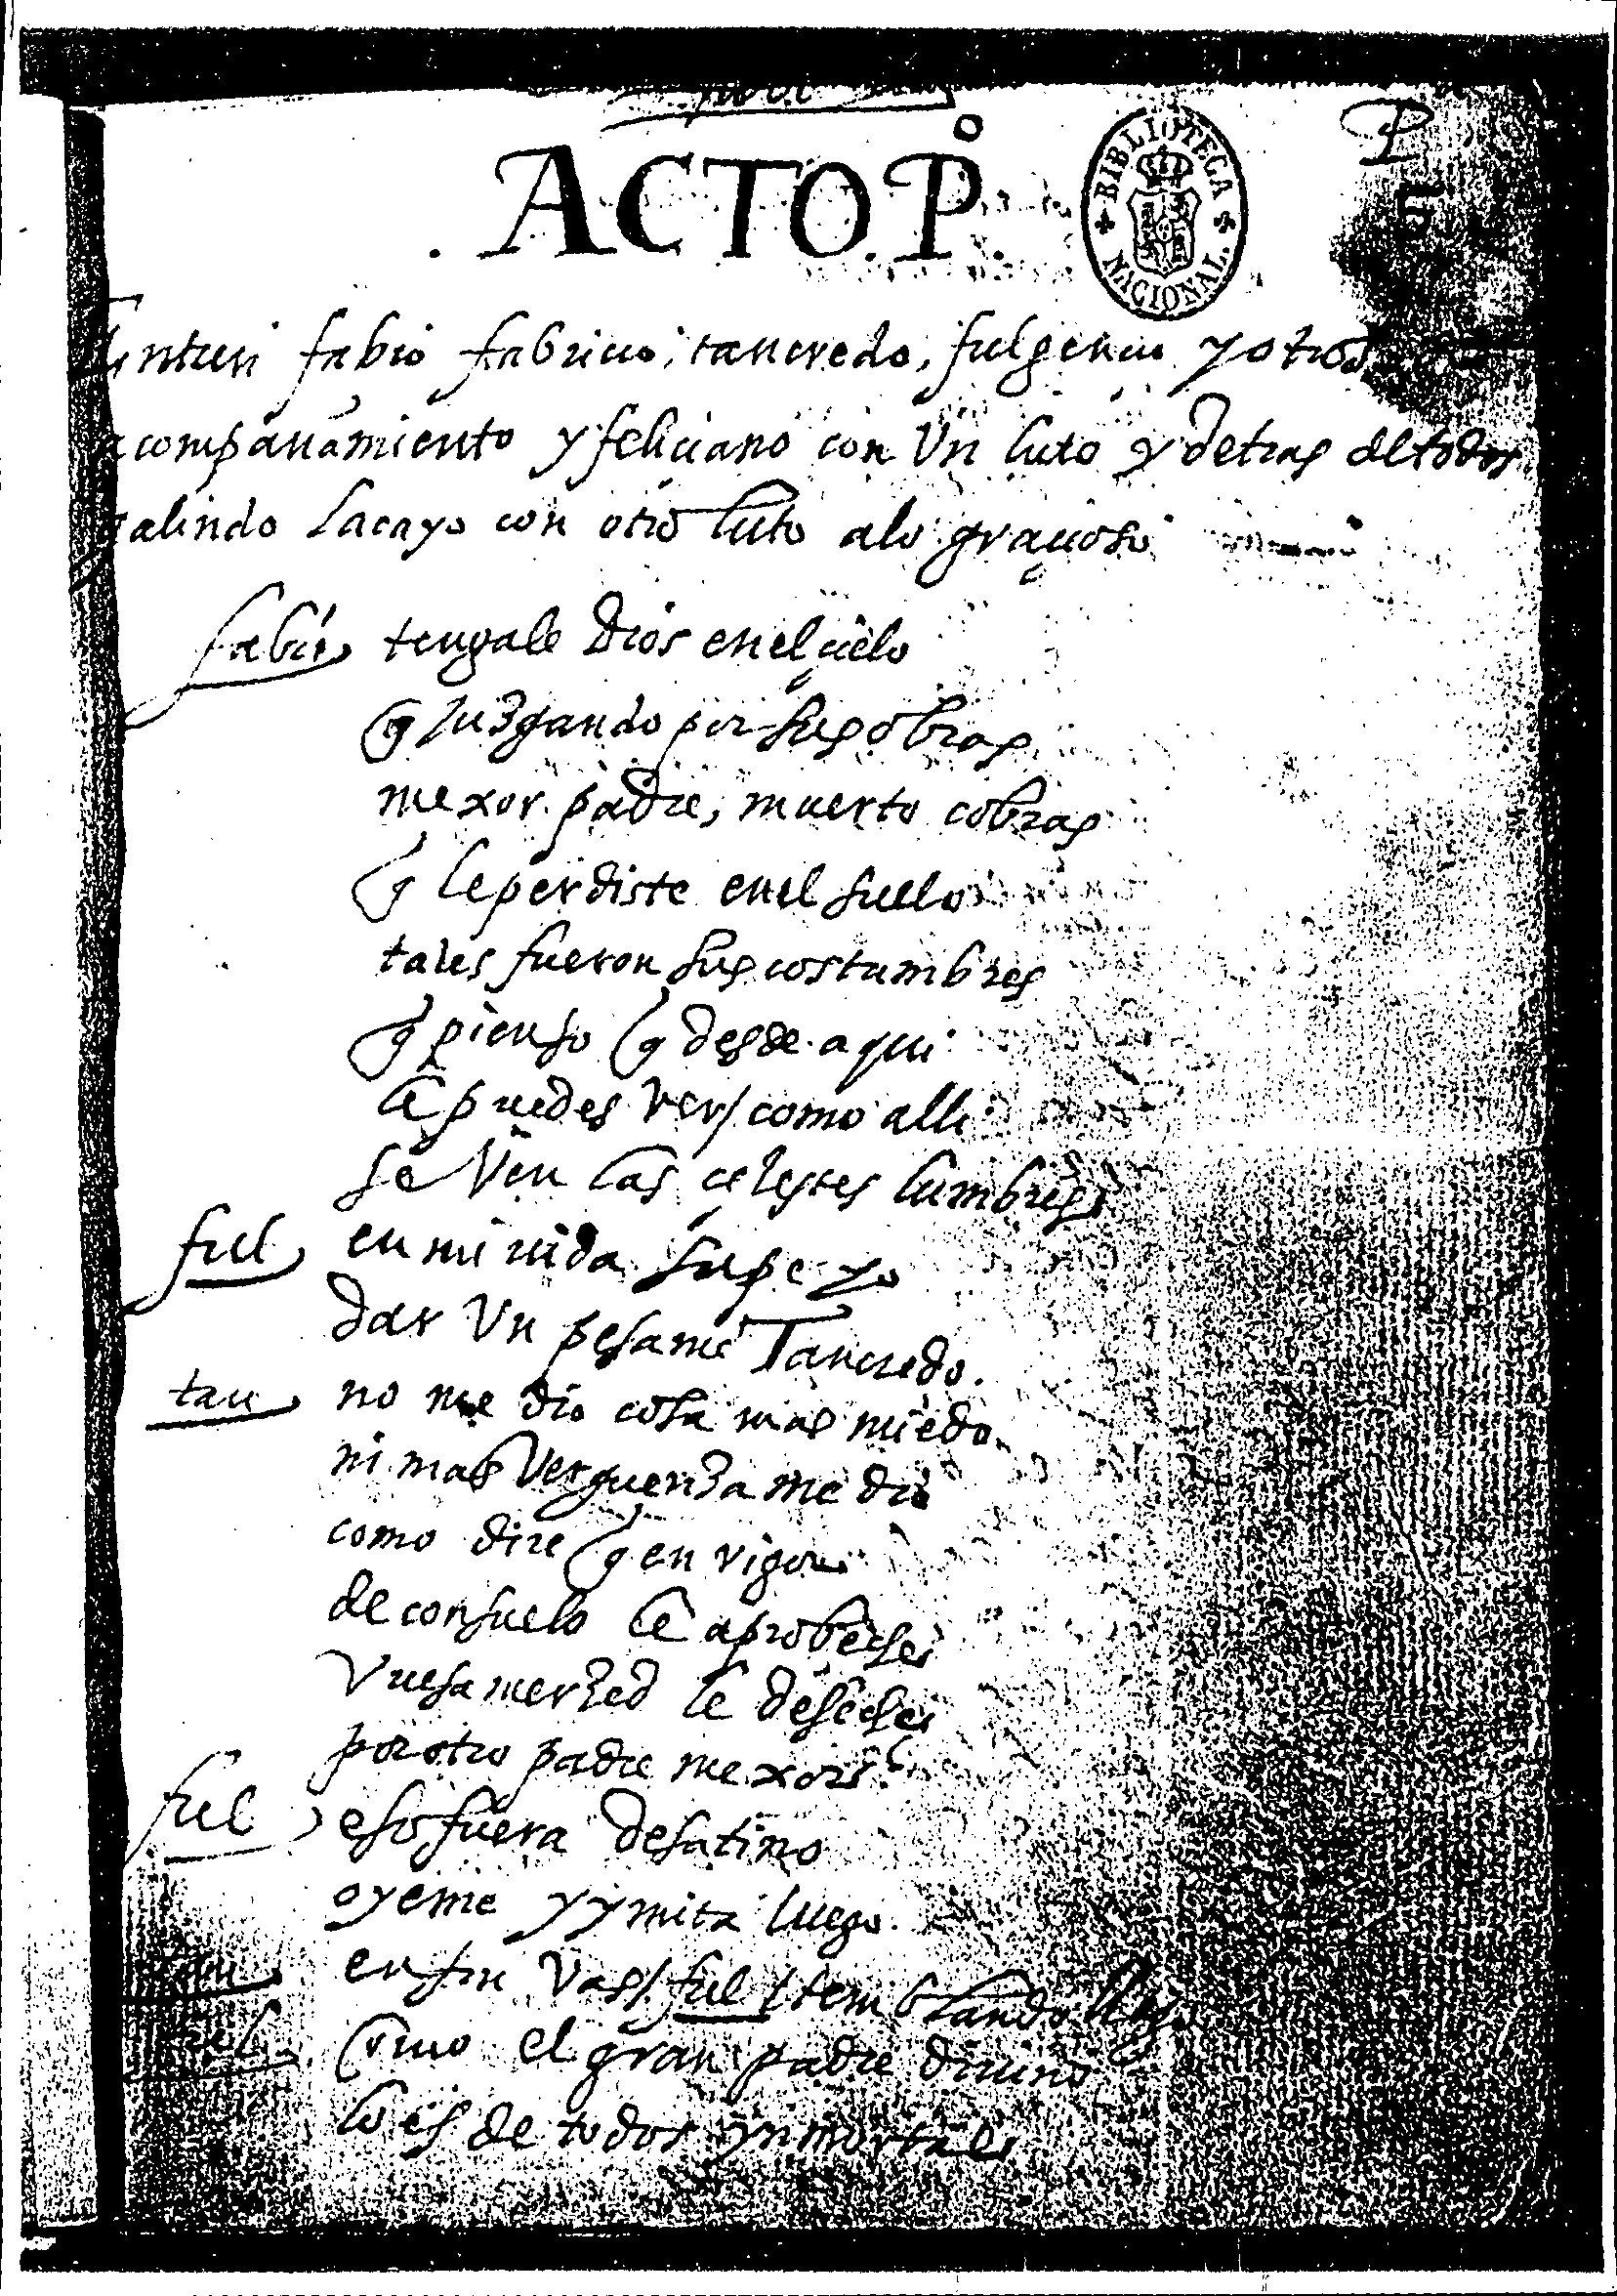 ACTO. P.º
BIBLIOTECA NACIONAL
Entren fabio fabricio, tancredo, fulgencio y otros
acompañamiento y feliciano con Un luto y detras de todos
galindo lacayo con otro luto a lo graçioso
fabio tengale Dios en el çielo
q juzgando por sus obras
mexor padre, muerto cobras
q le perdiste en el suelo
tales fueron sus costumbres
q pienso q desde aqui
le puedes ver / como alli
se Ven las çelestes lumbres
ful en mi uida supe yo
dar Un pesame Tancredo.
tan no me dio cosa mas miedo
ni mas Verguenza me dio
como dire q en rigor
de consuelo le aprobeche
Vuesa merzed le deseche
por otro padre mexor?
ful eso fuera desatino
oyeme y ymita luego.
tan en fin Vas /. ful / temblando llego
ful como el gran padre diuino
lo es de todos ynmortal